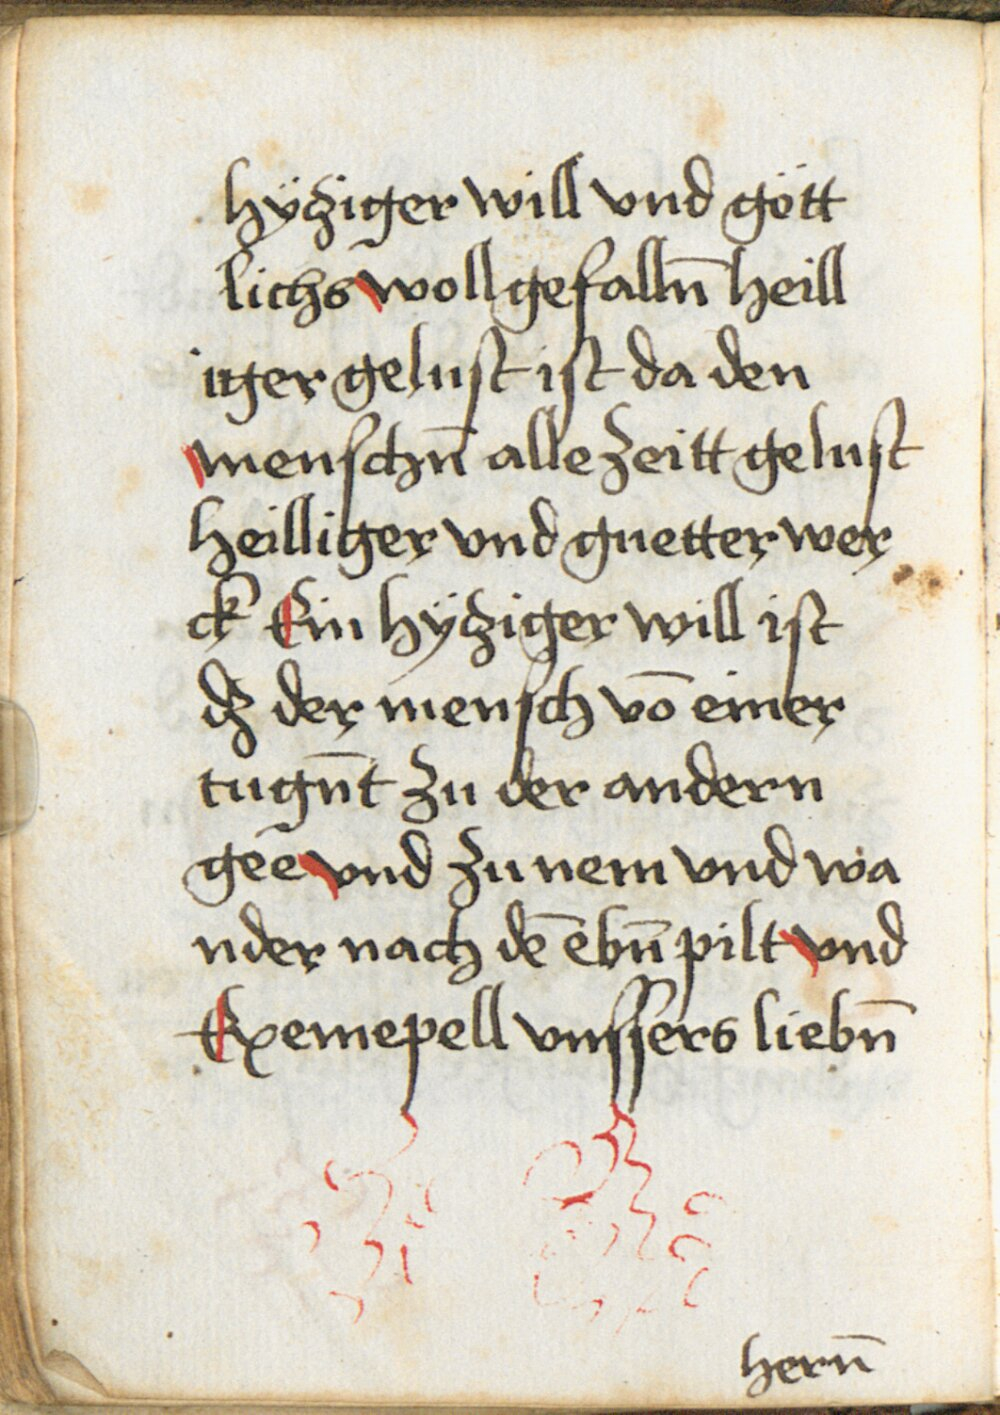 hÿcziger will vnd gött
lichs woll gefalln̄ heill
iger gelust ist da den
menschn̄ alle zeitt gelust
heilliger vnd guetter wer
ck Ein hÿcziger will ist
dz der mensch vō einer
tugn̄t zu der andern
geē vnd zu nem vnd wa
nder nach dē ebn̄ pilt vnd
Exemepell vnssers liebn̄
hern̄